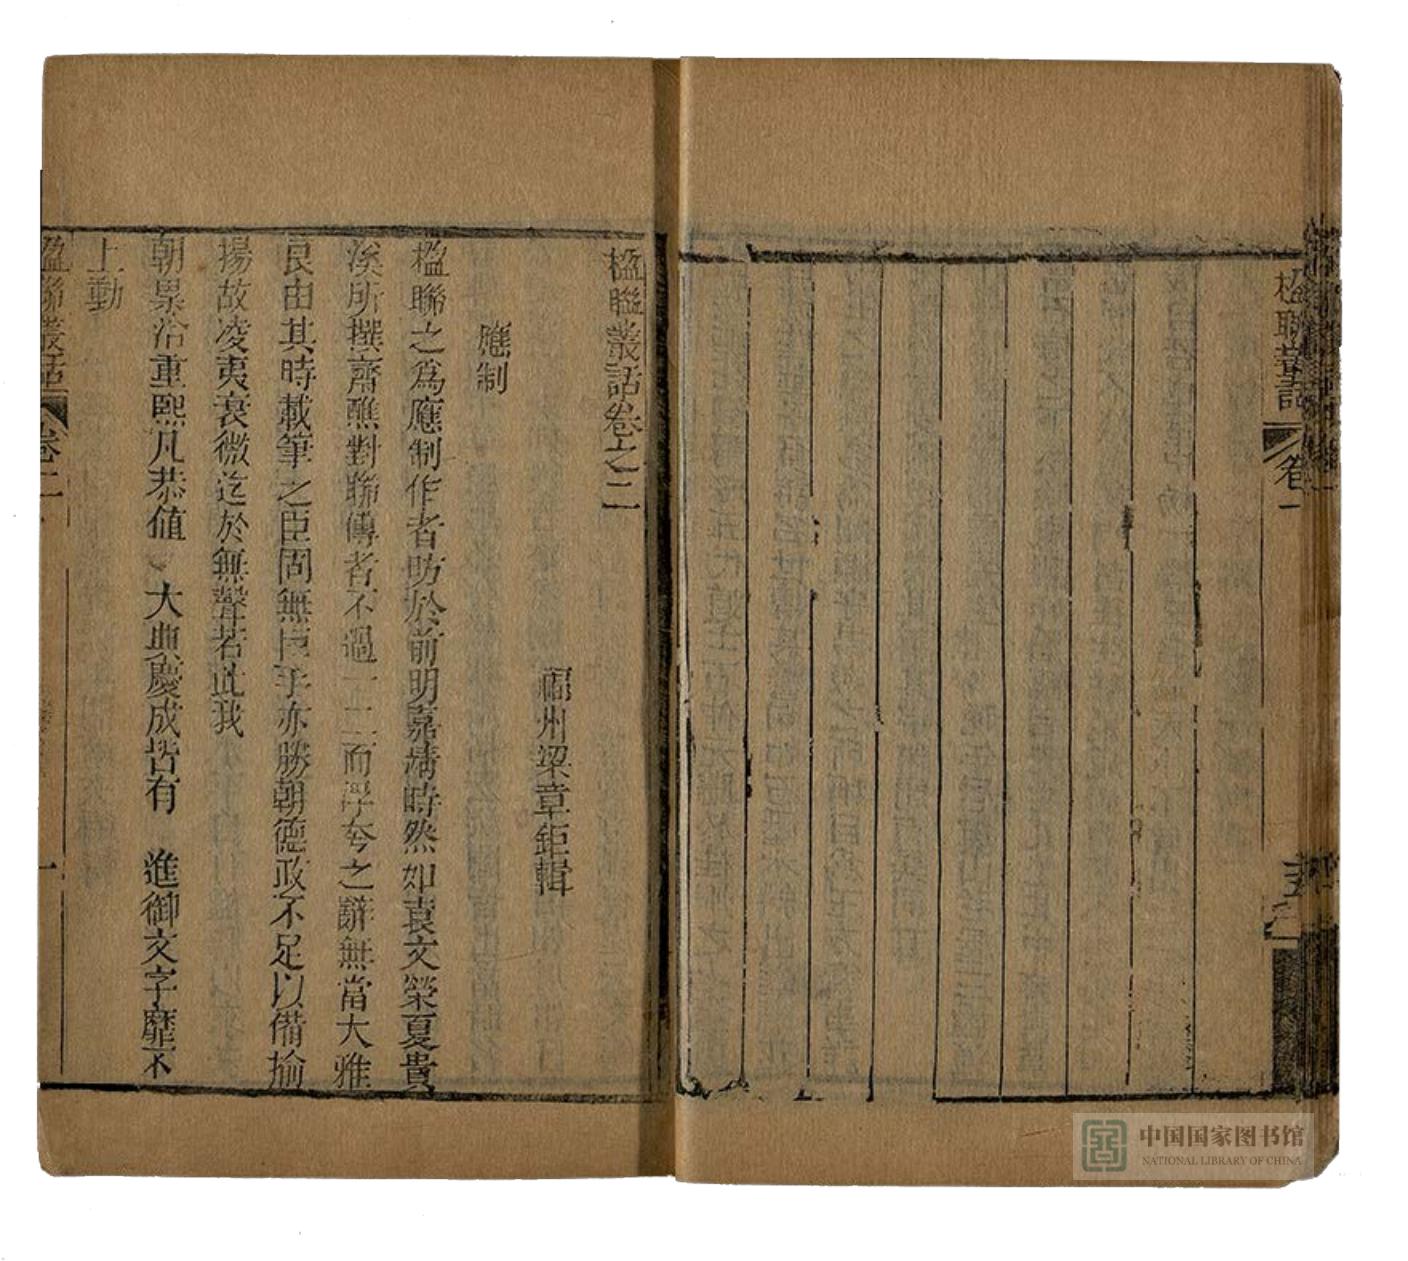 楹聯叢話
卷一
楹聯叢話卷之二
福州梁章鉅輯
應制
楹聯之爲應制作者昉於前明嘉靖時然如袁文榮夏貴
溪所撰齋醮對聯傳者不過一二而浮夸之辭無當大雅
良由其時載筆之臣固無巨手亦勝朝德政不足以備揄
揚故凌夷衰微迄於無聲若此我
朝累洽重熙凡恭值 大典慶成皆有 進御文字靡不
上動
楹聯叢話
卷二
一
中国国家图书馆
NATIONAL LIBRARY OF CHINA